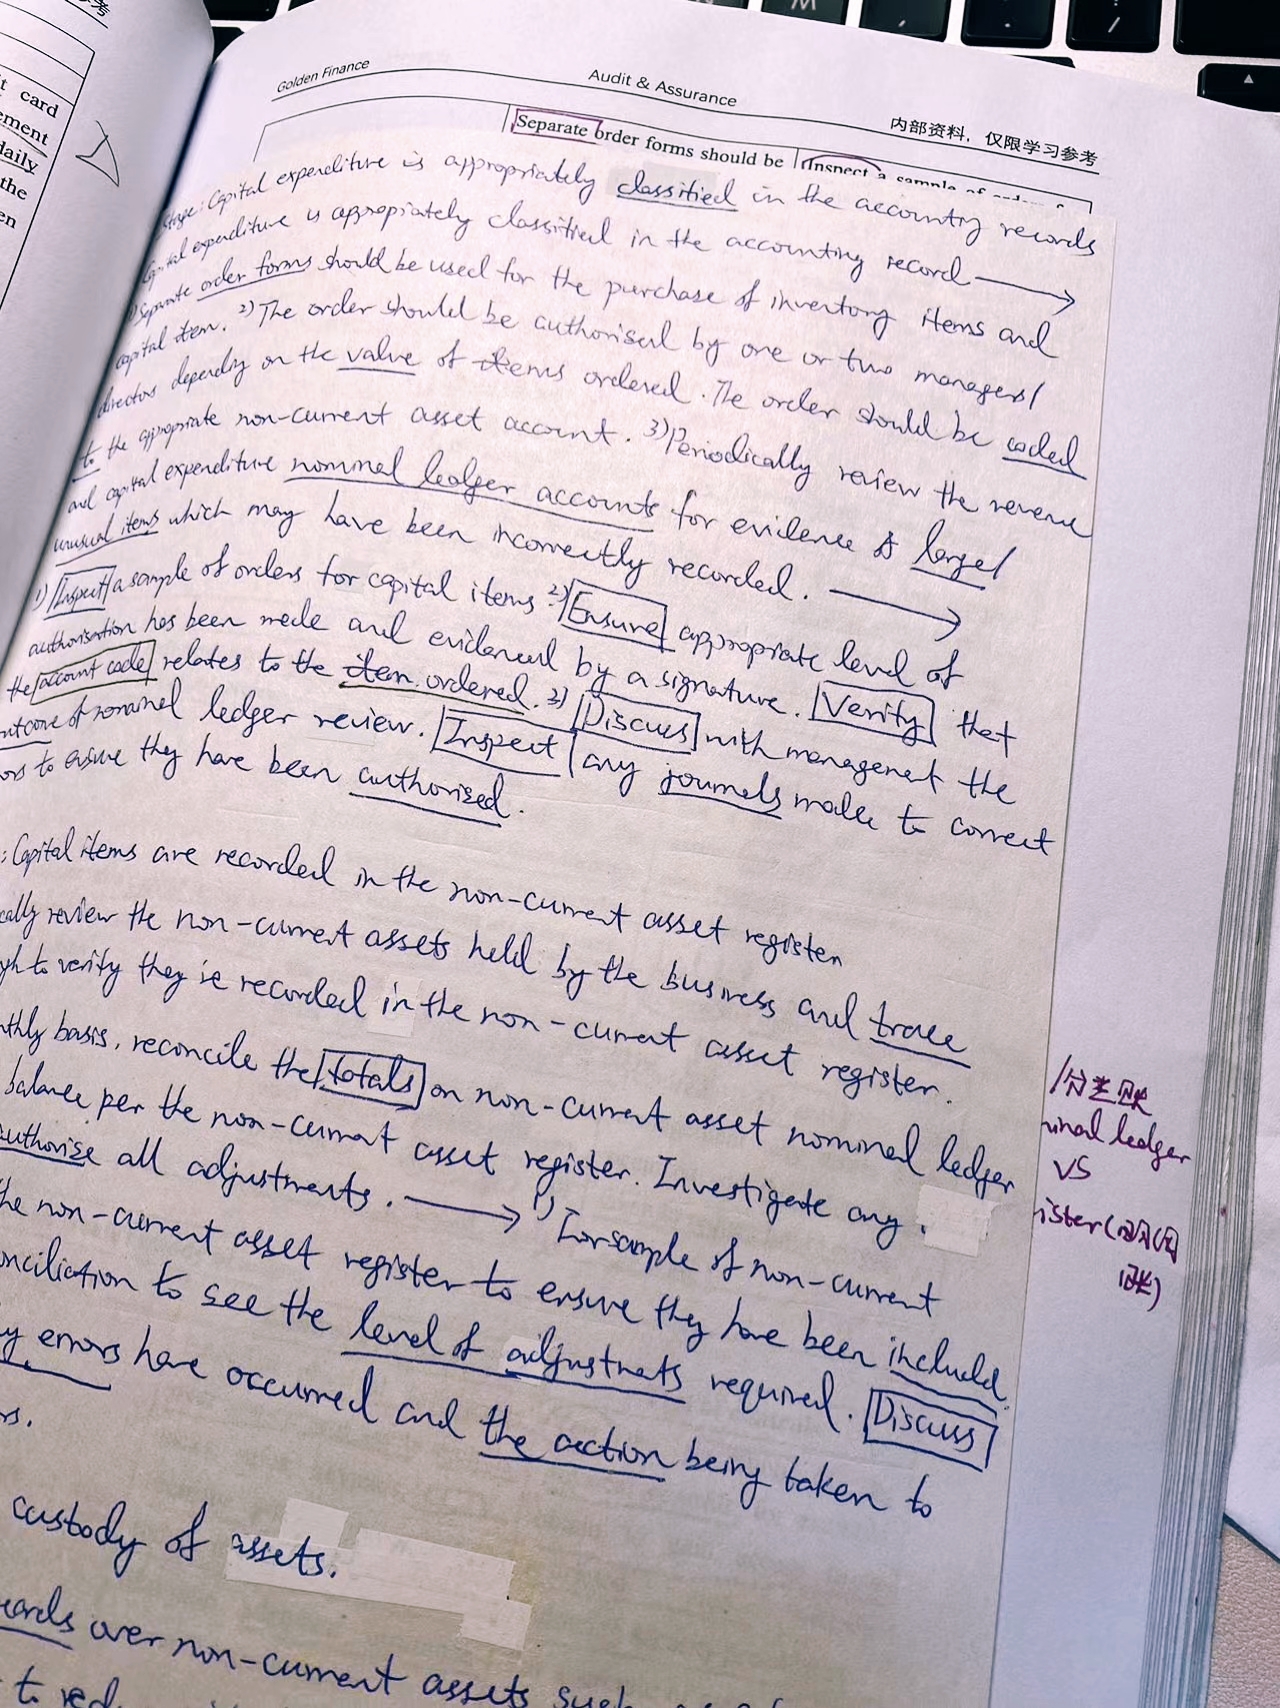 考
t card
ement
daily
the
en
Golden Finance
Audit & Assurance
内部资料，仅限学习参考
Separate order forms should be
Inspect a sample of orders
Stage: Capital expenditure is appropriately classified in the accounting records
Capital expenditure is appropiately classified in the accounting record →
1) Separate order forms should be used for the purchase of inventory items and
capital item. 2) The order should be authorised by one or two managers/
directors depending on the value of items ordered. The order should be coded
to the appropriate non-current asset account. 3) Periodically review the revenue
and capital expenditure nominal ledger accounts for evidence of large/
unusual items which may have been incorrectly recorded. →
1) Inspect a sample of orders for capital items 2) Ensure appropriate level of
authorisation has been made and evidenced by a signature. Verify that
the account code relates to the item ordered. 3) Discuss with management the
outcome of nominal ledger review. Inspect any journals made to correct
ors to ensure they have been authorised.
: Capital items are recorded in the non-current asset register
cally review the non-current assets held by the business and trace
gh to verify they're recorded in the non-current asset register.
nthly basis, reconcile the totals on non-current asset nominal ledger
balance per the non-current asset register. Investigate any
authorise all adjustments. → 1) For sample of non-current
he non-current asset register to ensure they have been include
onciliation to see the level of adjustments required. Discuss
y errors have occurred and the action being taken to
rs.
custody of assets.
over non-current assets such
to
inal ledger
VS
ister